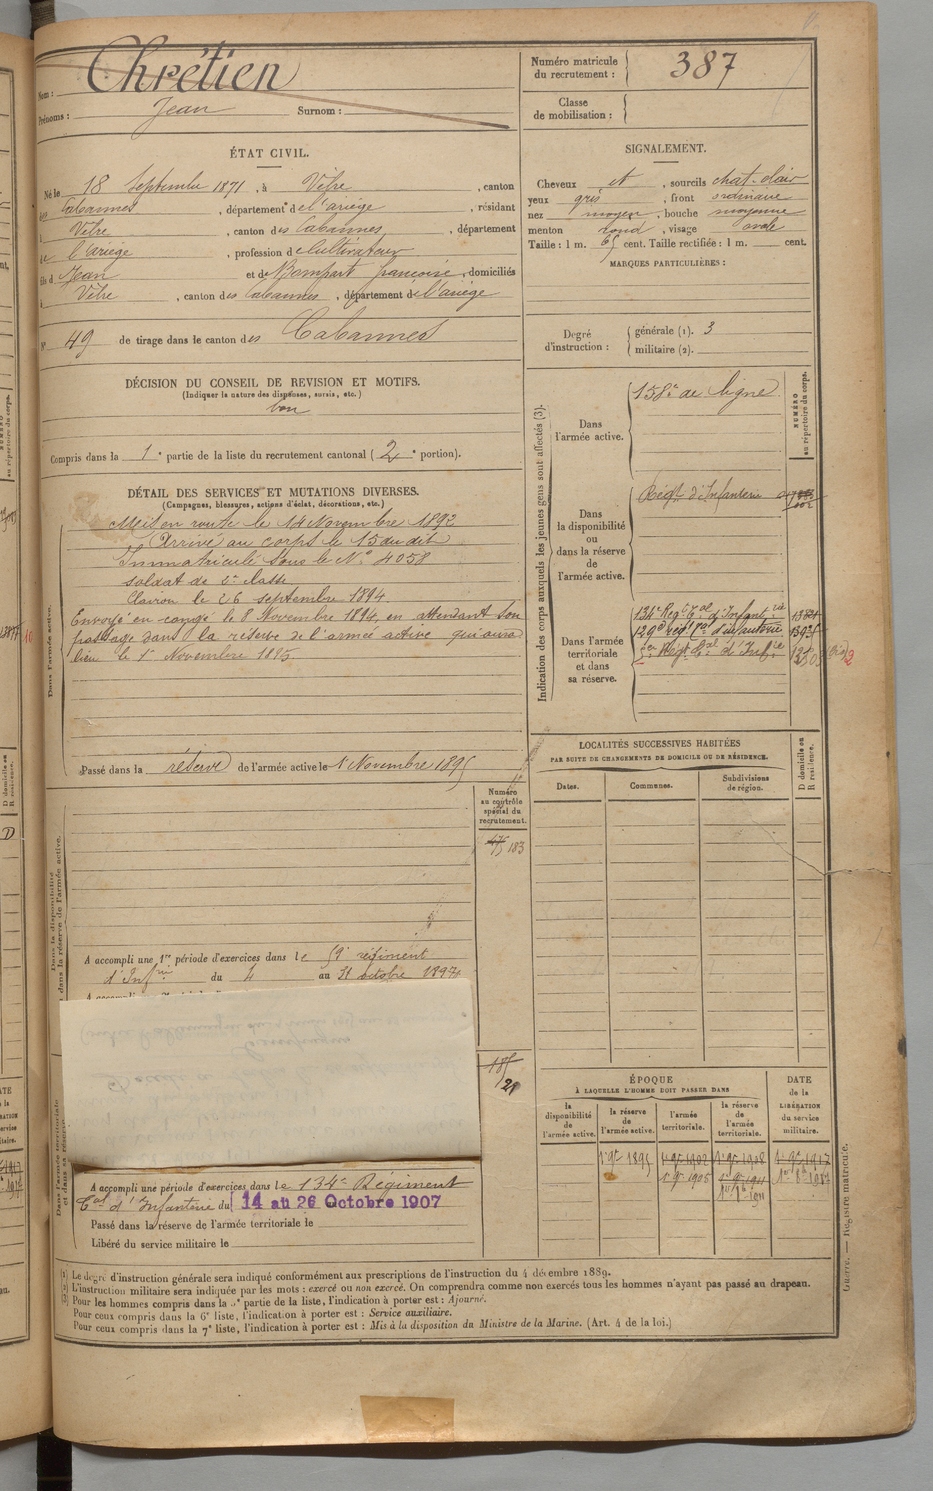 Nom : Chrétien
Prénoms : Jean Surnom :
ÉTAT CIVIL.
Né le 18 Septembre 1871, à Vèbre, canton
des Cabannes, département de l'ariège, résidant
à Vèbre, canton des Cabannes, département
de l'ariège, profession de Cultivateur
fils de Jean et de Bompart françoise, domiciliés
à Vèbre, canton des Cabannes, département de l'ariège
N° 49 de tirage dans le canton des Cabannes
DÉCISION DU CONSEIL DE REVISION ET MOTIFS.
(Indiquer la nature des dispenses, sursis, etc.)
bon
Compris dans la 1e partie de la liste du recrutement cantonal (2e portion).
DÉTAIL DES SERVICES ET MUTATIONS DIVERSES.
(Campagnes, blessures, actions d'éclat, décorations, etc.)
Dans l'armée active.
Mis en route le 14 Novembre 1892
Arrivé au corps le 15 du dit
Immatriculé sous le N° 4058
soldat de 2e classe
Clairon le 26 septembre 1894
Envoyé en congé le 8 Novembre 1894, en attendant son
passage dans la réserve de l'armée active qui aura
lieu le 1er Novembre 1895
Passé dans la réserve de l'armée active le 1 Novembre 1895
Numéro
au contrôle
spécial du
recrutement.
183
Dans la disponibilité
et dans la réserve de l'armée active.
A accompli une 1re période d'exercices dans le 59e régiment
d'Infrie du 4 au 31 octobre 1897
185
21
Dans l'armée territoriale
et dans sa réserve.
A accompli une période d'exercices dans le 134e Régiment
Tal d'Infanterie du 14 au 26 Octobre 1907
Passé dans la réserve de l'armée territoriale le
Libéré du service militaire le
Numéro matricule
du recrutement : 387
Classe
de mobilisation :
SIGNALEMENT.
Cheveux et, sourcils chat-clair
yeux gris, front ordinaire
nez moyen, bouche moyenne
menton rond, visage ovale
Taille : 1 m. 65 cent. Taille rectifiée : 1 m. cent.
MARQUES PARTICULIÈRES :
Degré
d'instruction :
générale (1). 3
militaire (2).
Indication des corps auxquels les jeunes gens sont affectés (3).
NUMÉRO
au répertoire du corps.
Dans
l'armée active.
158e de ligne
Dans
la disponibilité
ou
dans la réserve
de
l'armée active.
Régt d'Infanterie
Dans l'armée
territoriale
et dans
sa réserve.
134e Régt Tal d'Infantrie
129e régt Tal d'infanterie
Régt Tal d'Infie
LOCALITÉS SUCCESSIVES HABITÉES
PAR SUITE DE CHANGEMENTS DE DOMICILE OU DE RÉSIDENCE.
D domicile ou
R résidence.
Dates.
Communes.
Subdivisions
de région.
ÉPOQUE
À LAQUELLE L'HOMME DOIT PASSER DANS
DATE
de la
LIBÉRATION
du service
militaire.
la
disponibilité
de
l'armée active.
la réserve
de
l'armée active.
l'armée
territoriale.
la réserve
de
l'armée
territoriale.
1 9bre 1895
1 9bre 1905
Guerre. — Registre matricule.
(1) Le degré d'instruction générale sera indiqué conformément aux prescriptions de l'instruction du 4 décembre 1889.
(2) L'instruction militaire sera indiquée par les mots : exercé ou non exercé. On comprendra comme non exercés tous les hommes n'ayant pas passé au drapeau.
(3) Pour les hommes compris dans la 5e partie de la liste, l'indication à porter est : Ajourné.
Pour ceux compris dans la 6e liste, l'indication à porter est : Service auxiliaire.
Pour ceux compris dans la 7e liste, l'indication à porter est : Mis à la disposition du Ministre de la Marine. (Art. 4 de la loi.)